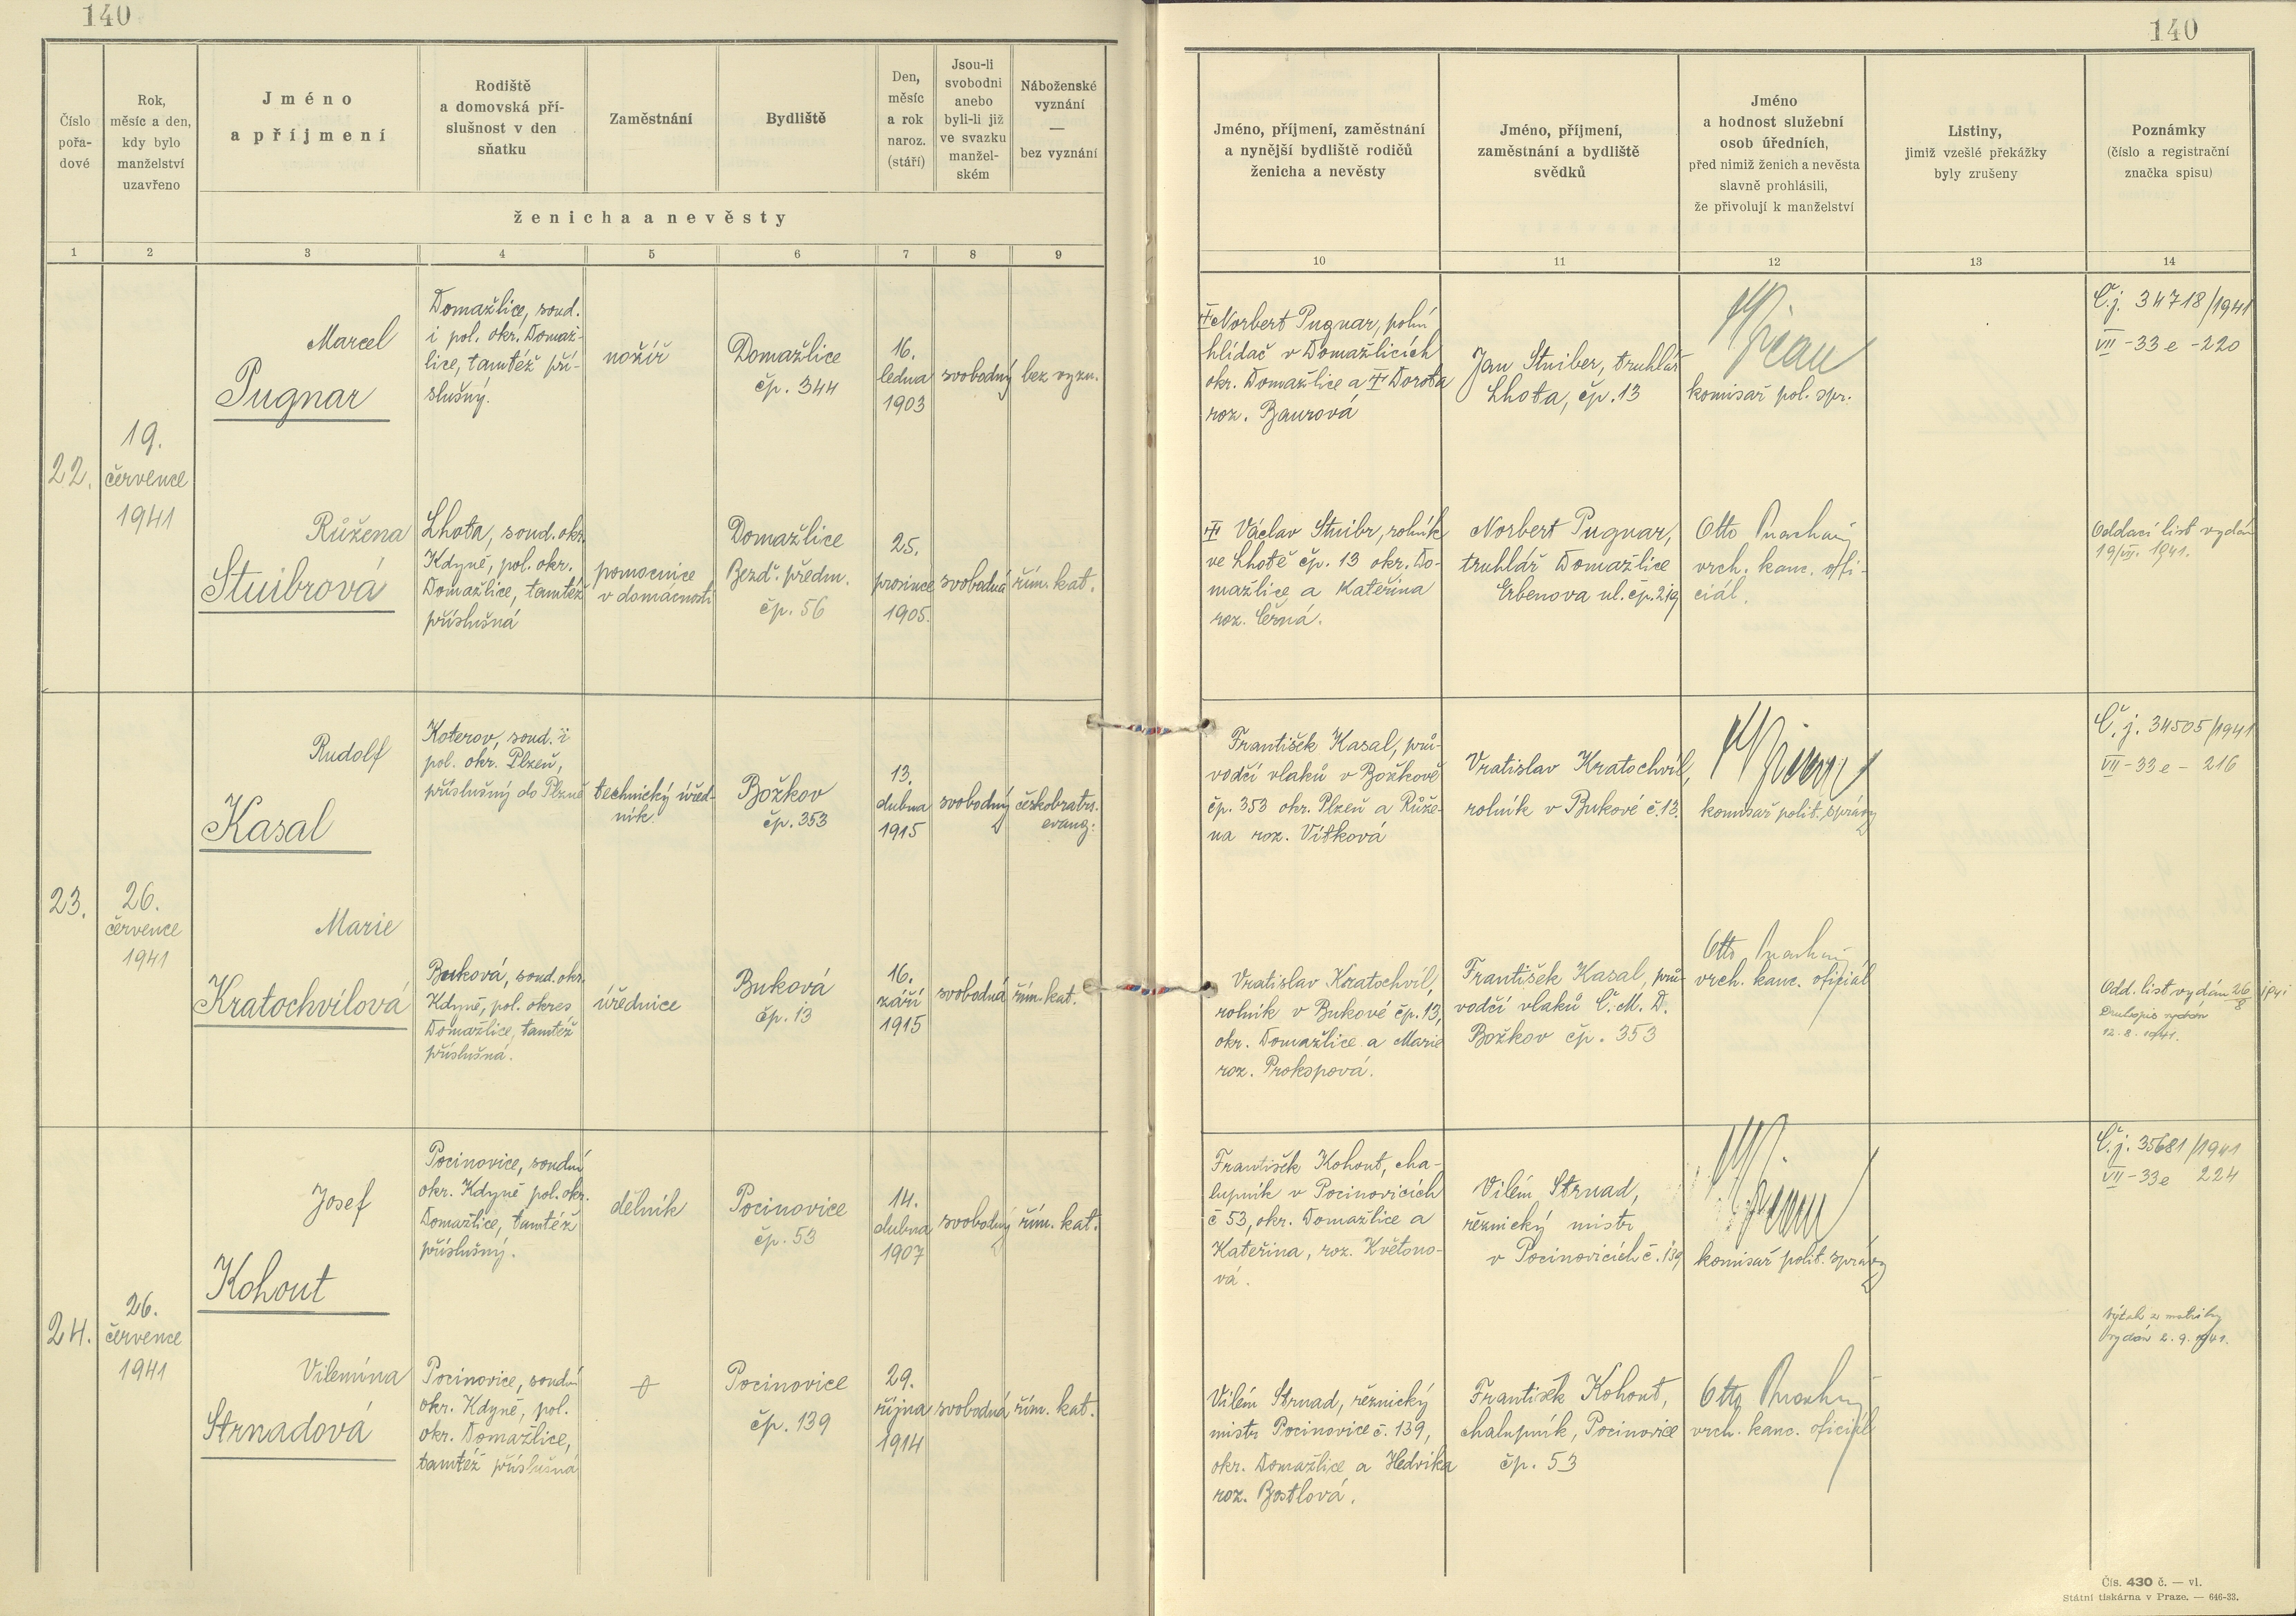 140
140
Číslo
pořa-
dové
Rok,
měsíc a den,
kdy bylo
manželství
uzavřeno
Jméno
a příjmení
Rodiště
a domovská pří-
slušnost v den
sňatku
Zaměstnání
Bydliště
Den,
měsíc
a rok
naroz.
(stáří)
Jsou-li
svobodni
anebo
byli-li již
ve svazku
manžel-
ském
Náboženské
vyznání
—
bez vyznání
ženicha a nevěsty
Jméno, příjmení, zaměstnání
a nynější bydliště rodičů
ženicha a nevěsty
Jméno, příjmení,
zaměstnání a bydliště
svědků
Jméno
a hodnost služební
osob úředních,
před nimiž ženich a nevěsta
slavně prohlásili,
že přivolují k manželství
Listiny,
jimiž vzešlé překážky
byly zrušeny
Poznámky
(číslo a registrační
značka spisu)
1 2 3 4 5 6 7 8 9 10 11 12 13 14
22.
19.
července
1941
Marcel
Pugnar
Domažlice, soud.
i pol. okr. Domaž-
lice, tamtéž pří-
slušný.
nožíř
Domažlice
čp. 344
16.
ledna
1903
svobodný
bez vyzn.
Norbert Pugnar, polní
hlídač v Domažlicích
okr. Domažlice a Dorota
roz. Baurová
Jan Stuiber, truhlář
Lhota, čp. 13
komisař pol. spr.
Č.j. 34718/1941
VII - 33 e - 220
Růžena
Stuibrová
Lhota, soud. okr.
Kdyně, pol. okr.
Domažlice, tamtéž
příslušná
pomocnice
v domácnosti
Domažlice
Bezd. předm.
čp. 56
25.
prosince
1905.
svobodná
řím. kat.
Václav Stuibr, rolník
ve Lhotě čp. 13 okr. Do-
mažlice a Kateřina
roz. Černá.
Norbert Pugnar,
truhlář Domažlice
Erbenova ul. čp. 219
Otto
vrch. kanc. ofi-
ciál.
Oddací list vydán
19/VII. 1941.
23.
26.
července
1941
Rudolf
Kasal
Koterov, soud. i
pol. okr. Plzeň,
příslušný do Plzně
technický úřed-
ník.
Božkov
čp. 353
13.
dubna
1915
svobodný
českobratrs.
evang.
František Kasal, prů-
vodčí vlaků v Božkově
čp. 353 okr. Plzeň a Růže-
na roz. Vítková
Vratislav Kratochvíl,
rolník v Bukové č. 13.
komisař polit. správy
Č.j. 34505/1941
VII - 33 e - 216
Marie
Kratochvílová
Buková, soud. okr.
Kdyně, pol. okres
Domažlice, tamtéž
příslušná.
úřednice
Buková
čp. 13
16.
září
1915
svobodná
řím. kat.
Vratislav Kratochvíl,
rolník v Bukové čp. 13,
okr. Domažlice a Marie
roz. Prokopová.
František Kasal, prů-
vodčí vlaků Č. M. D.
Božkov čp. 353
Otto
vrch. kanc. oficiál
Odd. list vydán 26/8 1941
Druhopis vydán
12. 8. 1941.
24.
26.
července
1941
Josef
Kohout
Pocinovice, soudní
okr. Kdyně pol. okr.
Domažlice, tamtéž
příslušný.
dělník
Pocinovice
čp. 53
14.
dubna
1907
svobodný
řím. kat.
František Kohout, cha-
lupník v Pocinovicích
č 53, okr. Domažlice a
Kateřina, roz. Květoňo-
vá.
Vilém Strnad,
řeznický mistr
v Pocinovicích č. 139
komisař polit. správy
Č.j. 35681/1941
VII - 33 e 224
Vilemína
Strnadová
Pocinovice, soudní
okr. Kdyně, pol.
okr. Domažlice,
tamtéž příslušná
Pocinovice
čp. 139
29.
října
1914
svobodná
řím. kat.
Vilém Strnad, řeznický
mistr Pocinovice č. 139,
okr. Domažlice a Hedvika
roz. Bostlová.
František Kohout,
chalupník, Pocinovice
čp. 53
Otto
vrch. kanc. oficiál
Výtah z matriky
vydán 2. 9. 1941.
Čís. 430 č. — vl.
Státní tiskárna v Praze. — 646-33.